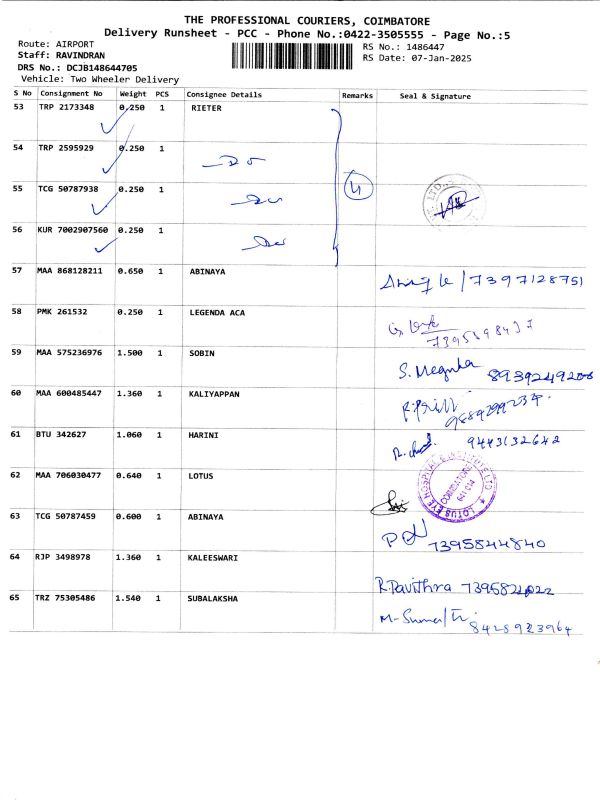 THE PROFESSIONAL COURIERS, COIMBATORE
Delivery Runsheet - PCC - Phone No.:0422-3505555 - Page No.:5
Route: AIRPORT RS No.: 1486447
Staff: RAVINDRAN RS Date: 07-Jan-2025
DRS No.: DCJB148644705
Vehicle: Two Wheeler Delivery
S No Consignment No Weight PCS Consignee Details Remarks Seal & Signature
53 TRP 2173348 0.250 1 RIETER
54 TRP 2595929 0.250 1
55 TCG 50787938 0.250 1 4
56 KUR 7002907560 0.250 1
57 MAA 868128211 0.650 1 ABINAYA 7397128751
58 PMK 261532 0.250 1 LEGENDA ACA
59 MAA 575236976 1.500 1 SOBIN S. Megnha
60 MAA 600485447 1.360 1 KALIYAPPAN
61 BTU 342627 1.060 1 HARINI 9443132642
62 MAA 706030477 0.640 1 LOTUS LOTUS EYE HOSPITAL & INSTITUTE LTD COIMBATORE 641 014
63 TCG 50787459 0.600 1 ABINAYA 7395844840
64 RJP 3498978 1.360 1 KALEESWARI R.Pavithra
65 TRZ 75305486 1.540 1 SUBALAKSHA